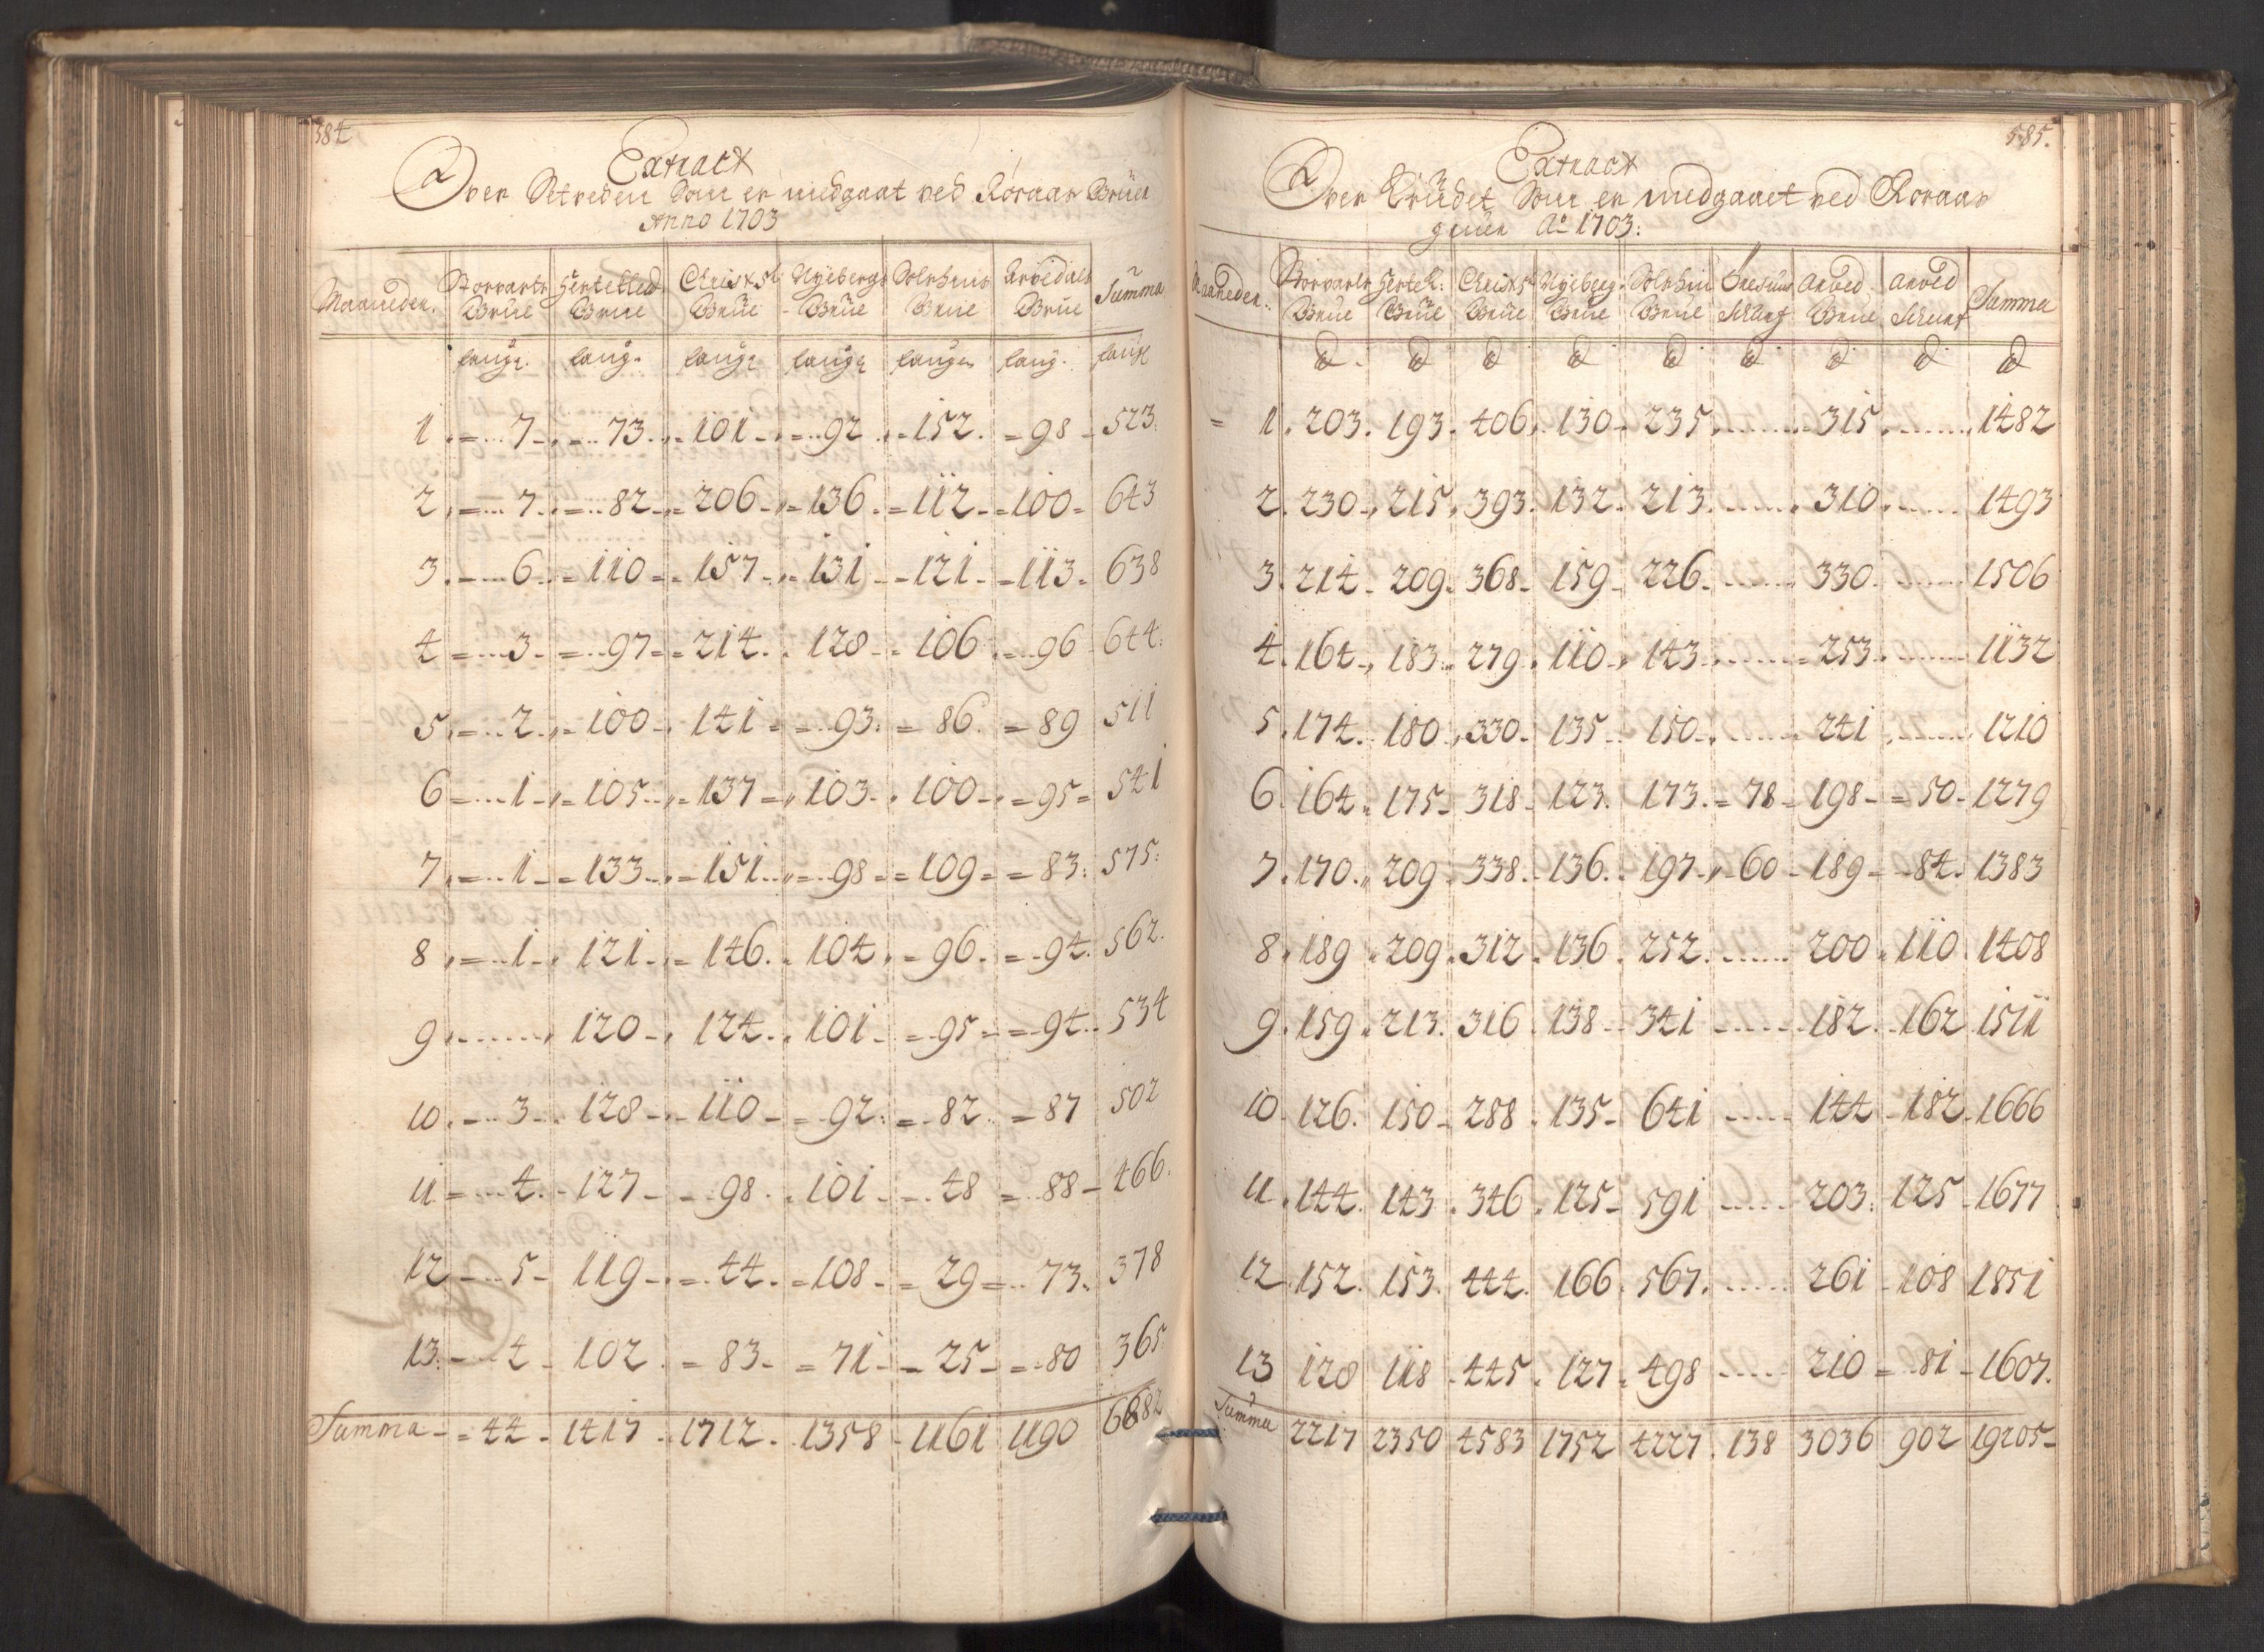 584
Extract
Over Setveden Som er medgaaet ved Röraas Brüer
Anno 1703
Maaneder. Storvarts Brüe Hestekled Brüe Christ: 5t Brüe Nyebergs Brüe Solschins Brüe Arvedals Brüe Summa
1 7 73 101 92 152 98 523
2 7 82 206 136 112 100 643
3 6 110 157 131 121 113 638
4 3 97 214 128 106 96 644
5 2 100 141 93 86 89 511
6 1 105 137 103 100 95 541
7 1 133 151 98 109 83 575
8 1 121 146 104 96 94 562
9 120 124 101 95 94 534
10 3 128 110 92 82 87 502
11 4 127 98 101 48 88 466
12 5 119 44 108 29 73 378
13 4 102 83 71 25 80 365
Summa 44 1417 1712 1358 1161 1190 6882
585.
Extract
Over Krüdet Som er medgaaet ved Röraas
grüer Ao 1703:
Maaneder. Storvarts Brüe Hestek: Brüe Christ 5t Brüe Nyeberg Brüe Solschin Brüe Schurf Arved Brüe Arved Schurf Summa
1 203 193 406 130 235 315 1482
2 230 215 393 132 213 310 1493
3 214 209 368 159 226 330 1506
4 164 183 279 110 143 253 1132
5 174 180 330 135 150 241 1210
6 164 175 318 123 173 78 198 50 1279
7 170 209 338 136 197 60 189 84 1383
8 189 209 312 136 252 200 110 1408
9 159 213 316 138 341 182 162 1511
10 126 150 288 135 641 144 182 1666
11 144 143 346 125 591 203 125 1677
12 152 153 444 166 567 261 108 1851
13 128 118 445 127 498 210 81 1607
Summa 2217 2350 4583 1752 4227 138 3036 902 19205